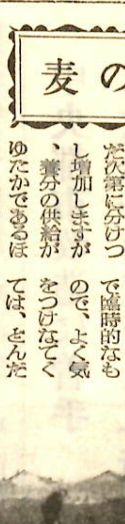 麦の
だ次第に分けつ
し増加しますが
、養分の供給が
ゆたかであるほ
で臨時的なも
ので、よく気
をつけなてく
ては、とんだ